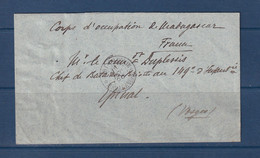 Corps d'occupation de Madagascar
France
Mr. le Comte Fr. Duplessis
Chef de Bataillon au 149e d'Infanterie
Epinal
(Vosges)